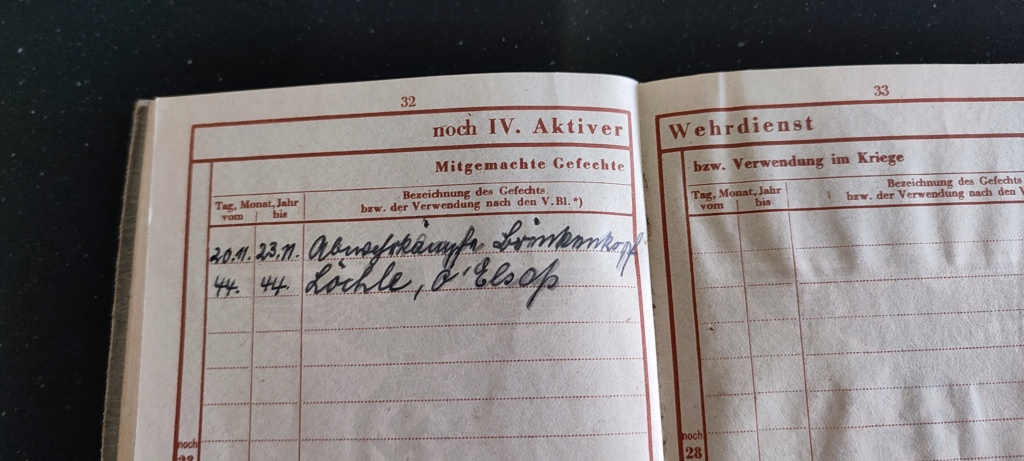 32
noch IV. Aktiver
Mitgemachte Gefechte
Tag, Monat, Jahr
vom bis
Bezeichnung des Gefechts
bzw. der Verwendung nach den V.Bl.*)
20.11. 23.11. Abwehrkämpfe Brinkenkopf
44. 44. Löchle, O' Elsaß
noch
28
33
Wehrdienst
bzw. Verwendung im Kriege
Tag, Monat, Jahr
vom bis
Bezeichnung des Gefechts
bzw. der Verwendung nach den V
noch
28